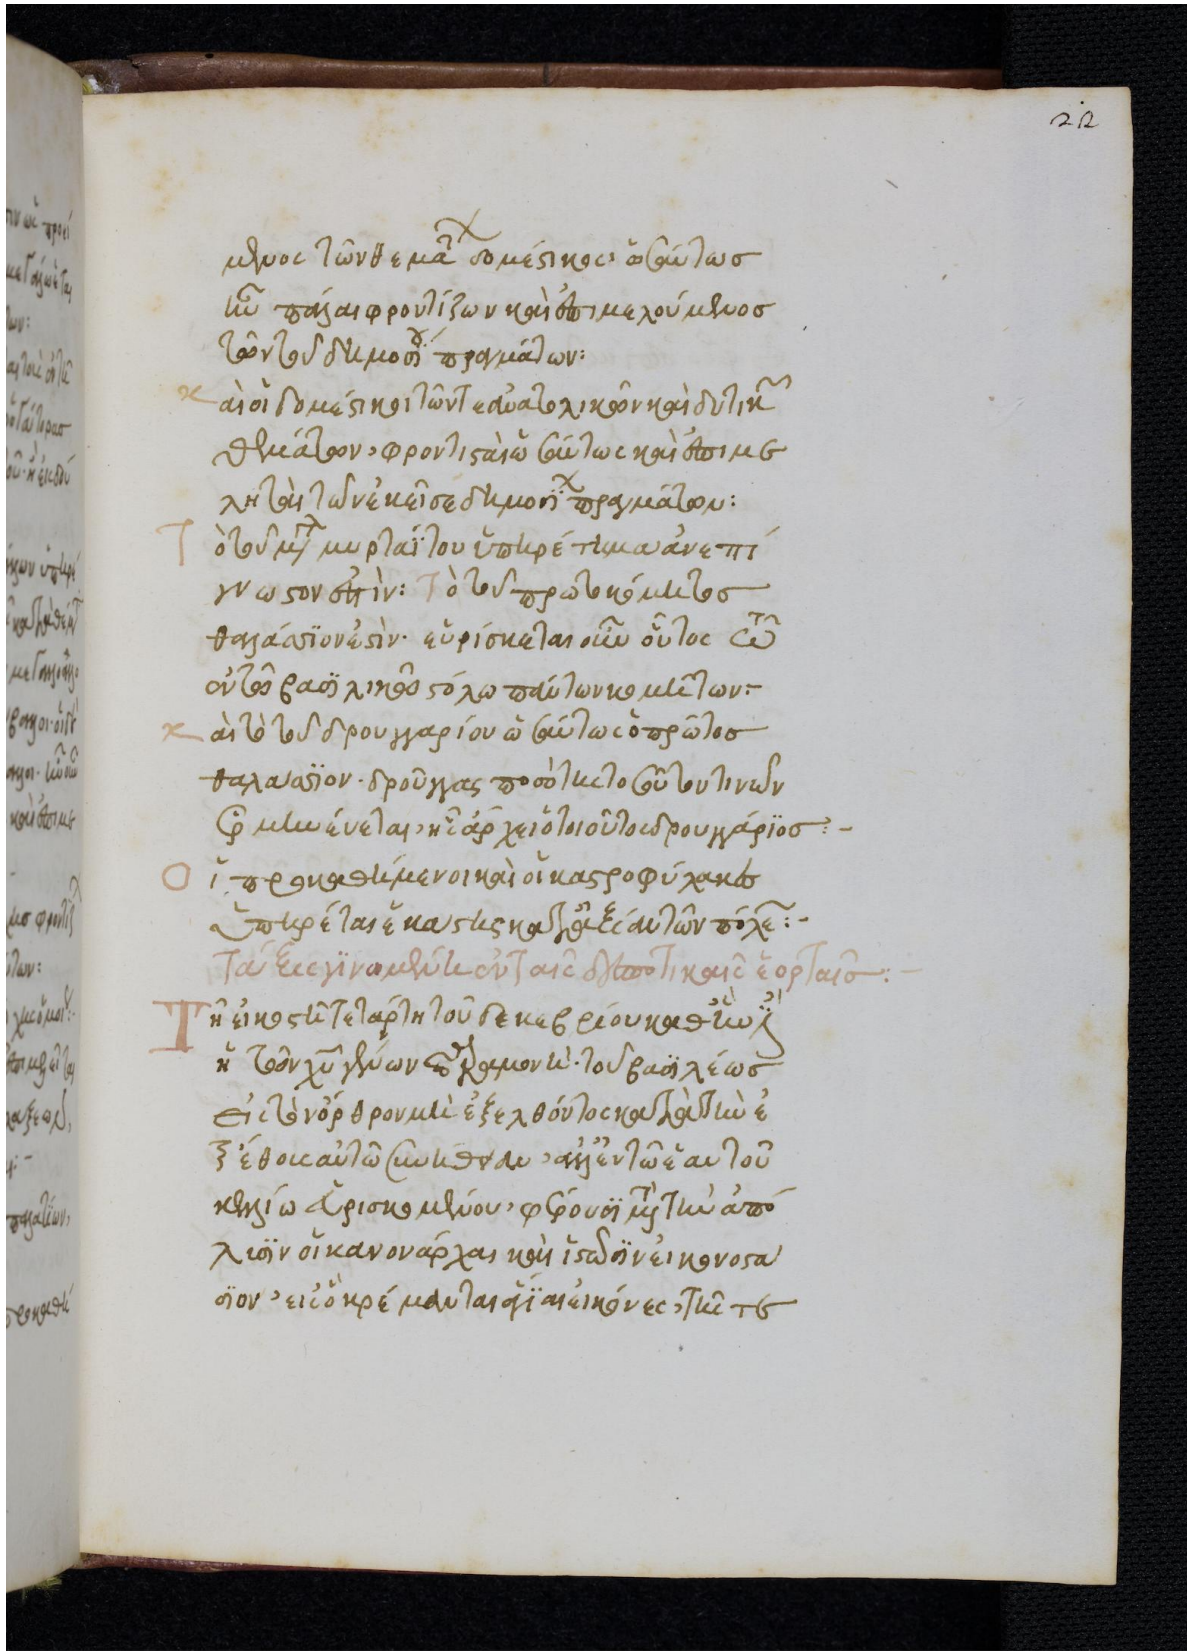 22
μενος τῶν θεμάτων δομέστικος, ὡσαύτωσ
ἦν πάλαι φροντίζων καὶ ἐπιμελούμενοσ
τῶν τοῦ δημοσίου πραγμάτων:
καὶ οἱ δομέστικοι τῶν τε ἀνατολικῶν καὶ δυτικῶν
θεμάτων, φροντισταὶ ὡσαύτως καὶ ἐπιμε
ληταὶ τῶν ἐκεῖσε δημοσιακῶν πραγμάτων:
Τὸ τοῦ μεγάλου μυρταΐτου ὑπηρέτημα ἀνεπί
γνωστον ἐστὶν: Τὸ τοῦ πρωτοκόμητοσ
θαλάσσιον ἐστὶν. εὑρίσκεται οὖν οὗτος πρῶτος
ἐν τῶ βασιλικῶ στόλω πάντων κομήτων:-
καὶ τὸ τοῦ δρουγγαρίου ὡσαύτως ὁ πρῶτοσ
θαλάσσιον. δροῦγγας ποσότητος οὖν
μὴ γένεται, ἧς ἄρχει ὁ τοιοῦτος δρουγγάριοσ:-
Οἱ προκαθήμενοι καὶ οἱ καστροφύλακεσ
ὑπηρέται ἕκαστος κατὰ τάξιν αὐτῶν πόλεων:-
Τάξις γινομένη ἐν ταῖς δεσποτικαῖς ἑορταῖσ:-
Τῆ εἰκοστῆ τετάρτη τοῦ δεκεβρίου καθ' ἣν
ἡ τῶν χριστοῦ γεννῶν παραμονή. τοῦ βασιλέωσ
εἰς τὸν ὄρθρον μὴ ἐξελθόντος κατὰ τὴν ἐ
ξ ἔθους αὐτῶ συνήθειαν, ἀλλ' ἐν τῶ ἑαυτοῦ
κελλίω εὑρισκομένου, φέρουσι μετὰ τὴν ἀπό
λυσιν οἱ κανονάρχαι καὶ ἱστῶσιν εἰκονοστά
σιον, εἰς ὃ κρέμανται ἅγιαι εἰκόνες, τῆς τε